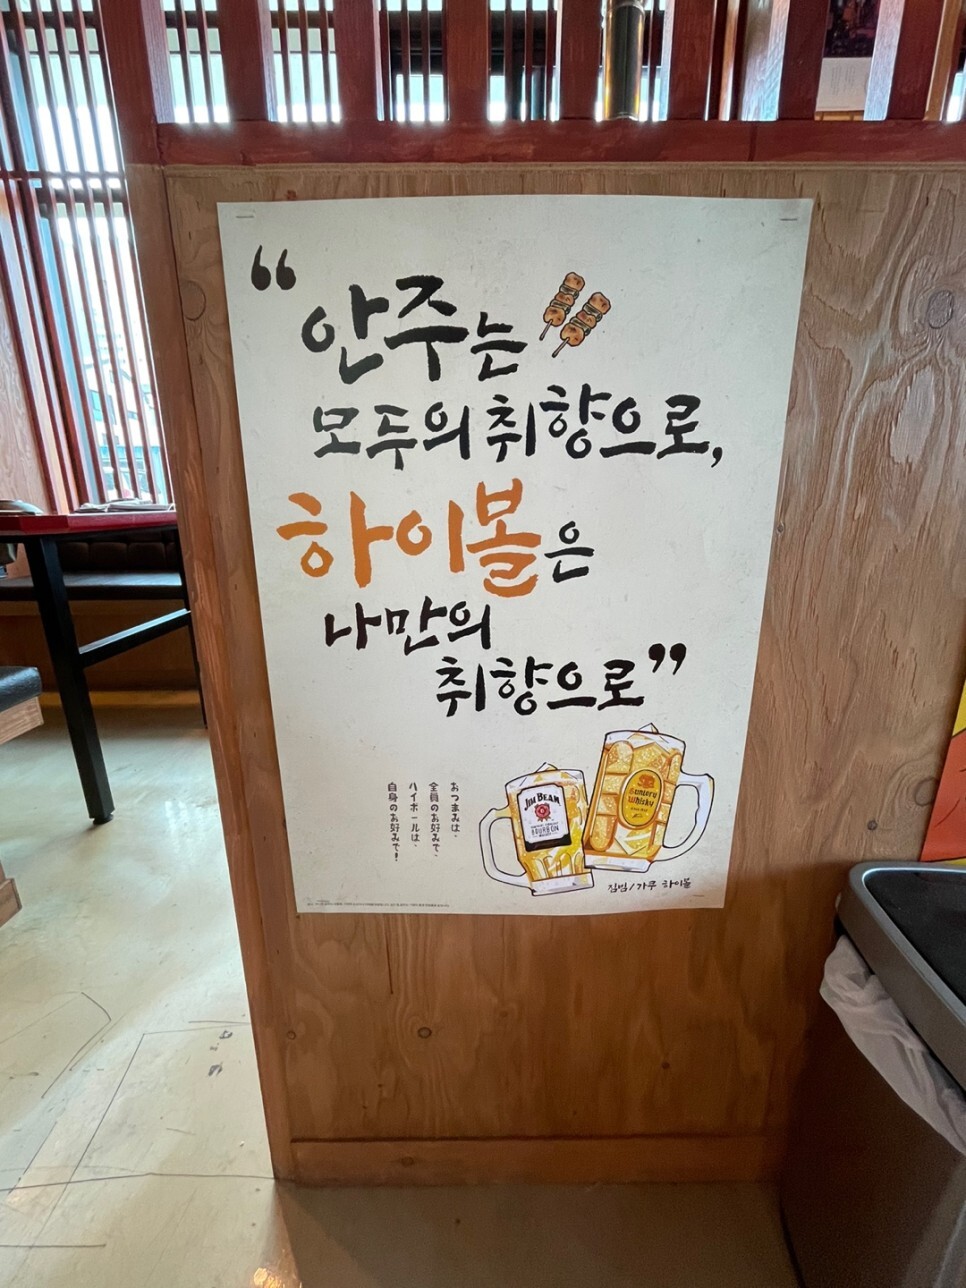 “안주는
모두의 취향으로,
하이볼은
나만의
취향으로”
おつまみは、
全員のお好みで、
ハイボールは、
自身のお好みで！
JIM BEAM
BOURBON
Suntory
Whisky
짐빔/가쿠 하이볼